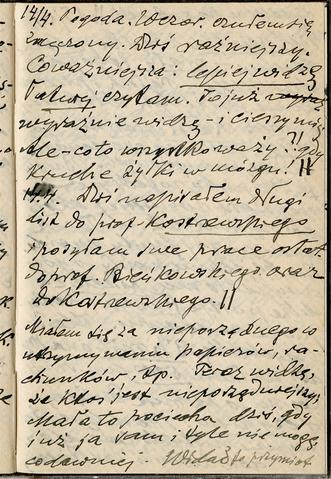 14/4. Pogoda. Wczor. czułem się
zmęczony. Dziś raźniejszy.
Co ważniejsza: lepiej widzę
łatwiej czytam. To już
wyraźnie widzę - i cieszy mię
Ale - co to wszystko waży ?! gdy
kruche żyłki w mózgu! ||
14.4. Dziś napisałem długi
list do prof. Kostrzewskiego
i posyłam swe prace ostat.
do prof. Bieńkowskiego oraz
do Kostrzewskiego. ||
Miałem się za nieporządnego w
utrzymywaniu papierów, ra-
chunków, i tp. Teraz widzę,
że ktoś jest nieporządniejszy.
Mała to pociecha dziś, gdy
już ja sam i tyle nie mogę
co dawniej. Widać to przymiot